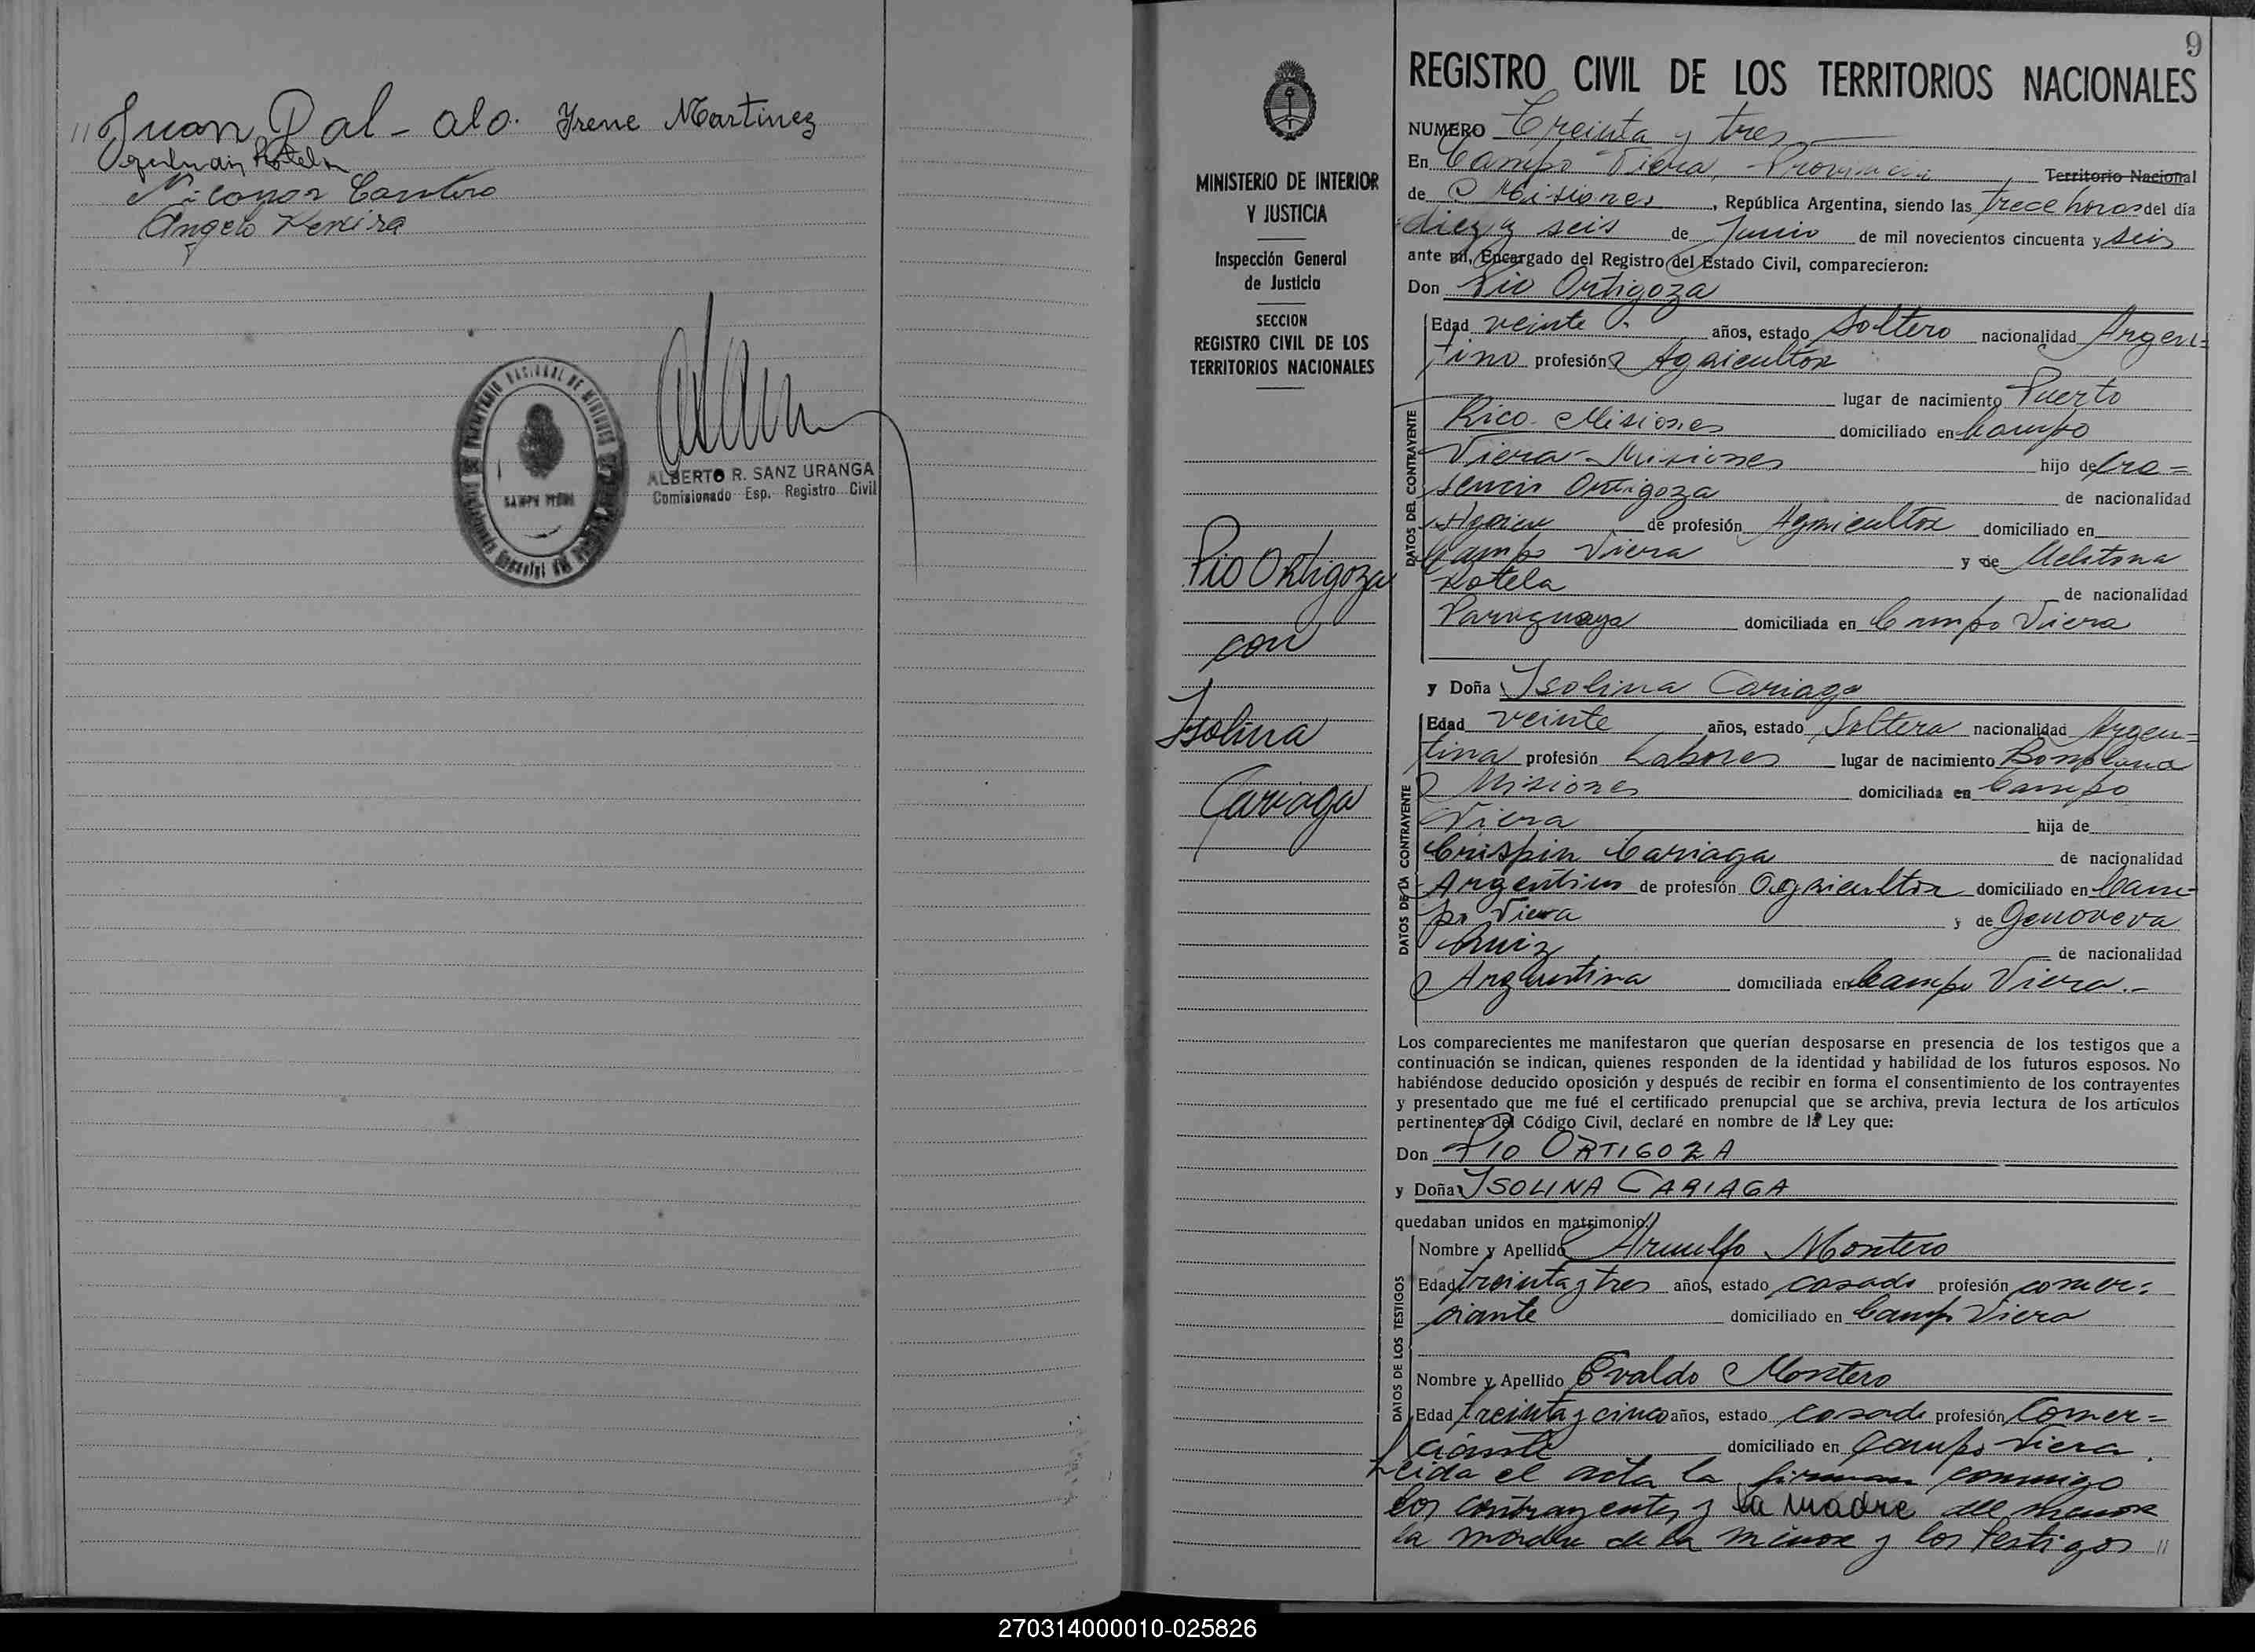 Juan Dal-alo. Irene Martinez
Cantero
Angelo Pereira
ALBERTO R. SANZ URANGA
Comisionado Esp. Registro Civil
9
MINISTERIO DE INTERIOR
Y JUSTICIA
Inspección General
de Justicia
SECCION
REGISTRO CIVIL DE LOS
TERRITORIOS NACIONALES
Pio Ortigoza
con
Isolina
Cariaga
REGISTRO CIVIL DE LOS TERRITORIOS NACIONALES
NUMERO Treinta y tres
En Campo Viera, Provincia Territorio Nacional
de Misiones, República Argentina, siendo las trece horas del día
diez y seis de Junio de mil novecientos cincuenta y seis
ante mi, Encargado del Registro del Estado Civil, comparecieron:
Don Pio Ortigoza
DATOS DEL CONTRAYENTE
Edad veinte años, estado Soltero nacionalidad Argen=
tino profesión Agricultor
lugar de nacimiento Puerto
Rico Misiones domiciliado en Campo
Viera Misiones hijo de
Ortigoza de nacionalidad
de profesión Agricultor domiciliado en
Campo Viera y de
Rotela de nacionalidad
Paraguaya domiciliada en Campo Viera
y Doña Isolina Cariaga
DATOS DE LA CONTRAYENTE
Edad veinte años, estado Soltera nacionalidad Argen=
tina profesión Labores lugar de nacimiento Bonpland
Misiones domiciliada en Campo
Viera hija de
Crispin Cariaga de nacionalidad
Argentino de profesión Agricultor domiciliado en Cam-
po Viera y de Genoveva
Ruiz de nacionalidad
Argentina domiciliada en Campo Viera.-
Los comparecientes me manifestaron que querían desposarse en presencia de los testigos que a
continuación se indican, quienes responden de la identidad y habilidad de los futuros esposos. No
habiéndose deducido oposición y después de recibir en forma el consentimiento de los contrayentes
y presentado que me fué el certificado prenupcial que se archiva, previa lectura de los artículos
pertinentes del Código Civil, declaré en nombre de la Ley que:
Don PIO ORTIGOZA
y Doña ISOLINA CARIAGA
quedaban unidos en matrimonio.
DATOS DE LOS TESTIGOS
Nombre y Apellido Arnulfo Montero
Edad treinta y tres años, estado casado profesión comer-
siante domiciliado en Campo Viera
Nombre y Apellido Evaldo Montero
Edad treinta y cinco años, estado casado profesión Comer=
ciante domiciliado en Campo Viera
Leida el acta la firman conmigo
los contrayentes y la madre del menor
la madre de la menor y los testigos //
270314000010-025826